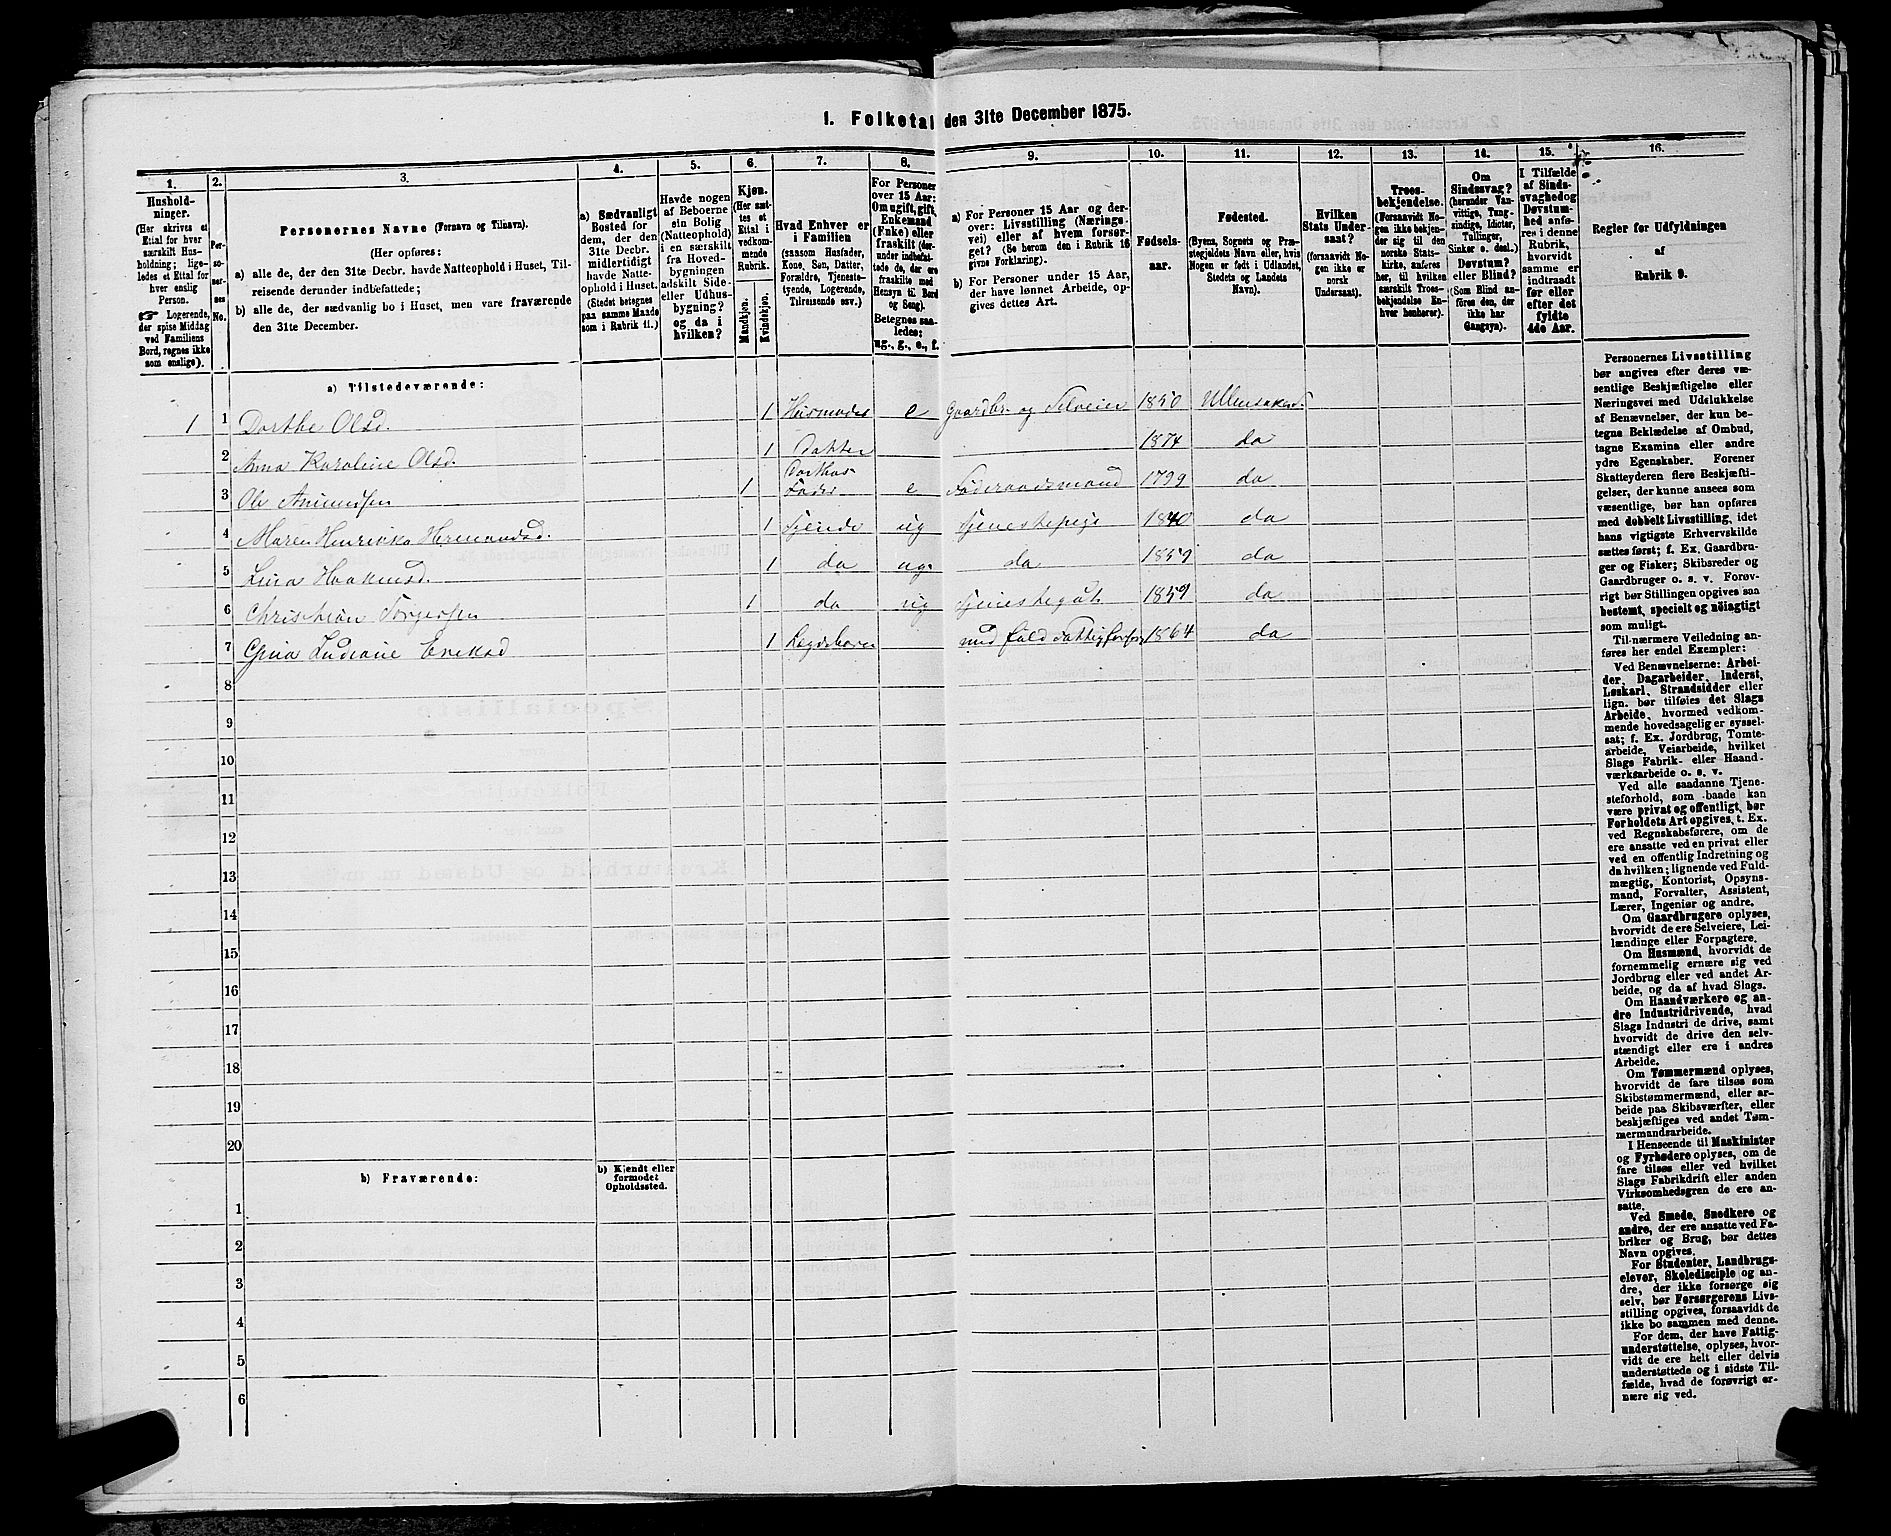 1. Folketal den 31te December 1875.
1.
Hushold-
ninger.
(Her skrives et
Ettal for hver
særskilt Hus-
holdning; lige-
ledes et Ettal for
hver enslig
Person.
☞ Logerende,
der spise Middag
ved Familiens
Bord, regnes ikke
som enslige).
2.
Per-
so-
ner-
nes
No.
3.
Personernes Navne (Fornavn og Tilnavn).
(Her opføres:
a) alle de, der den 31te Decbr. havde Natteophold i Huset, Til-
reisende derunder indbefattede;
b) alle de, der sædvanlig bo i Huset, men vare fraværende
den 31te December.
4.
a) Sædvanligt
Bosted for
dem, der den
31te Decbr.
midlertidigt
havde Natte-
ophold i Huset.
(Stedet betegnes
paa samme Maade
som i Rubrik 11.)
5.
Havde nogen
af Beboerne
sin Bolig
(Natteophold)
i en særskilt
fra Hoved-
bygningen
adskilt Side-
eller Udhus-
bygning?
og da i
hvilken?
6.
Kjøn.
(Her sæt-
tes et
Ettal i
vedkom-
mende
Rubrik.
Mandkjøn.
Kvindekjøn.
7.
Hvad Enhver er
i Familien
(saasom Husfader,
Kone, Søn, Datter,
Forældre, Tjeneste-
tyende, Logerende,
Tilreisende osv.)
8.
For Personer
over 15 Aar:
Om ugift, gift,
Enkemand
(Enke) eller
fraskilt (der-
under indbefat-
tede de, der ere
fraskilte med
Hensyn til Bord
og Seng).
Betegnes saa-
ledes:
ug., g., e., f.
9.
a) For Personer 15 Aar og der-
over: Livsstilling (Nærings-
vei) eller af hvem forsør-
get? (Se herom den i Rubrik 16
givne Forklaring).
b) For Personer under 15 Aar,
der have lønnet Arbeide, op-
gives dettes Art.
10.
Fødsels-
aar.
11.
Fødested.
(Byens, Sognets og Præ-
stegjeldets Navn eller, hvis
Nogen er født i Udlandet,
Stedets og Landets
Navn).
12.
Hvilken
Stats Under-
saat?
(forsaavidt No-
gen ikke er
norsk
Undersaat).
13.
Troes-
bekjendelse.
(Forsaavidt No-
gen ikke bekjen-
der sig til den
norske Stats-
kirke, anføres
her, til hvilken
særskilt Troes-
bekjendelse En-
hver henhører).
14.
Om
Sindssvag?
(herunder Van-
vittige, Tung-
sindige, Idioter,
Tullinger,
Sinker o. desl.)
Døvstum?
eller Blind?
(Som Blind an-
føres den, der
ikke har
Gangsyn).
15.
I Tilfælde
af Sinds-
svaghed og
Døvstum-
hed anfø-
res i denne
Rubrik,
hvorvidt
samme er
indtraadt
før eller
efter det
fyldte
4de Aar.
16.
Regler for Udfyldningen
af
Rubrik 9.
a) Tilstedeværende:
1 1 Dorthe Olsd. 1 Husmoder e Gaardbr. og Selveier 1850 Ullensaker
2 Anna Karoline Olsd. 1 Datter 1874 do
3 Ole Amundsen 1 Dorthes Fader e Føderaadsmand 1799 do
4 Maren Henrikka Hermandsd. 1 Tjende ug Tjenestepige 1840 do
5 Lina Haakensd. 1 do ug. do 1859 do
6 Christian Torgersen 1 do ug Tjenestegut 1859 do
7 Gina Ludvine Eriksd 1 Lægdsbarn med fuld Fattigforsørg 1864 do
8
9
10
11
12
13
14
15
16
17
18
19
20
b) Fraværende:
b) Kjendt eller
formodet
Opholdssted.
1
2
3
4
5
6
Personernes Livsstilling
bør angives efter deres væ-
sentlige Beskjæftigelse eller
Næringsvei med Udelukkelse
af Benævnelser, der kun be-
tegne Beklædelse af Ombud,
tagne Examina eller andre
ydre Egenskaber. Forener
Skatteyderen flere Beskjæfti-
gelser, der kunne ansees som
væsentlige, bør han opføres
med dobbelt Livsstilling, idet
hans vigtigste Erhvervskilde
sættes først; f. Ex. Gaardbru-
ger og Fisker; Skibsreder og
Gaardbruger o. s. v. Forøv-
rigt bør Stillingen opgives saa
bestemt, specielt og nøiagtigt
som muligt.
Til nærmere Veiledning an-
føres her endel Exempler:
Ved Benævnelserne: Arbei-
der, Dagarbeider, Inderst,
Løskarl, Strandsidder eller
lign. bør tilføies det Slags
Arbeide, hvormed vedkom-
mende hovedsagelig er syssel-
sat; f. Ex. Jordbrug, Tomte-
arbeide, Veiarbeide, hvilket
Slags Fabrik- eller Haand-
værksarbeide o. s. v.
Ved alle saadanne Tjene-
steforhold, som baade kan
være privat og offentligt, bør
Forholdets Art opgives, t. Ex.
ved Regnskabsførere, om de
ere ansatte ved en privat eller
ved en offentlig Indretning og
da hvilken; lignende ved Fuld-
mægtig, Kontorist, Opsyns-
mand, Forvalter, Assistent,
Lærer, Ingeniør og andre.
Om Gaardbrugere oplyses,
hvorvidt de ere Selveiere, Lei-
lændinge eller Forpagtere.
Om Husmænd, hvorvidt de
fornemmelig ernære sig ved
Jordbrug eller ved andet Ar-
beide, og da af hvad Slags.
Om Haandværkere og an-
dre Industridrivende, hvad
Slags Industri de drive, samt
hvorvidt de drive den selv-
stændigt eller ere i andres
Arbeide.
Om Tømmermænd oplyses,
hvorvidt de fare tilsøs som
Skibstømmermænd, eller ar-
beide paa Skibsværfter, eller
beskjæftiges ved andet Tøm-
mermandsarbeide.
I Henseende til Maskinister
og Fyrbødere oplyses, om de
fare tilsøs eller ved hvilket
Slags Fabrikdrift eller anden
Virksomhedsgren de ere an-
satte.
Ved Smede, Snedkere og
andre, der ere ansatte ved Fa-
briker og Brug, bør dettes
Navn opgives.
For Studenter, Landbrugs-
elever, Skoledisciple og an-
dre, der ikke forsørge sig
selv, bør Forsørgerens Livs-
stilling opgives, forsaavidt de
ikke bo sammen med denne.
For dem, der have Fattig-
understøttelse, oplyses, hvor-
vidt de ere helt eller delvis
understøttede og i sidste Til-
fælde, hvad de forøvrigt er-
nære sig ved.